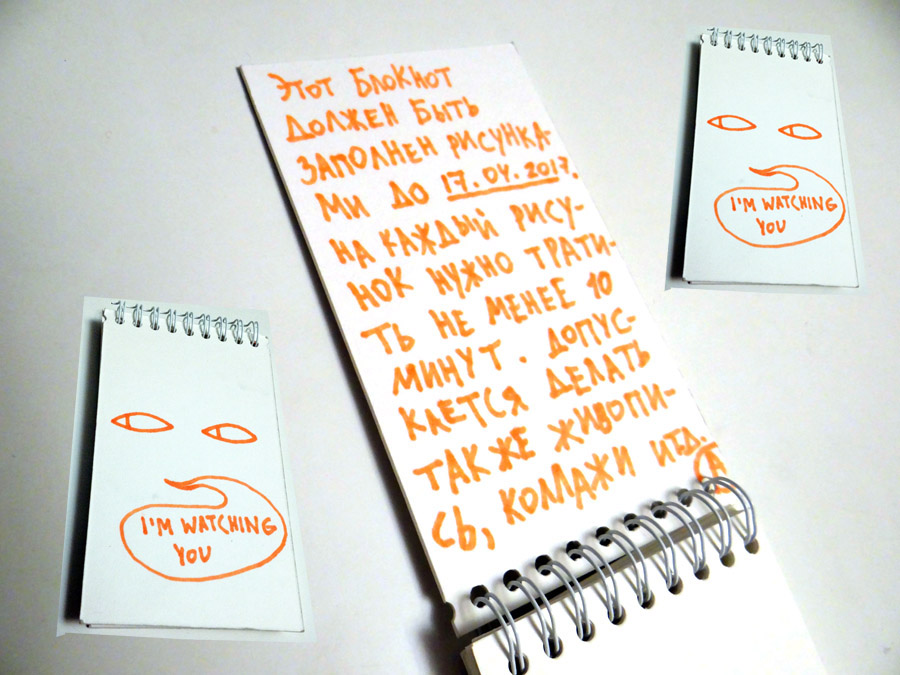 ЭТОТ БЛОКНОТ
ДОЛЖЕН БЫТЬ
ЗАПОЛНЕН РИСУНКА-
МИ ДО 17.04.2017.
НА КАЖДЫЙ РИСУ-
НОК НУЖНО ТРАТИ-
ТЬ НЕ МЕНЕЕ 10
МИНУТ. ДОПУС-
КАЕТСЯ ДЕЛАТЬ
ТАКЖЕ ЖИВОПИ-
СЬ, КОЛЛАЖИ ИТД.
A
I'M WATCHING
YOU
I'M WATCHING
YOU